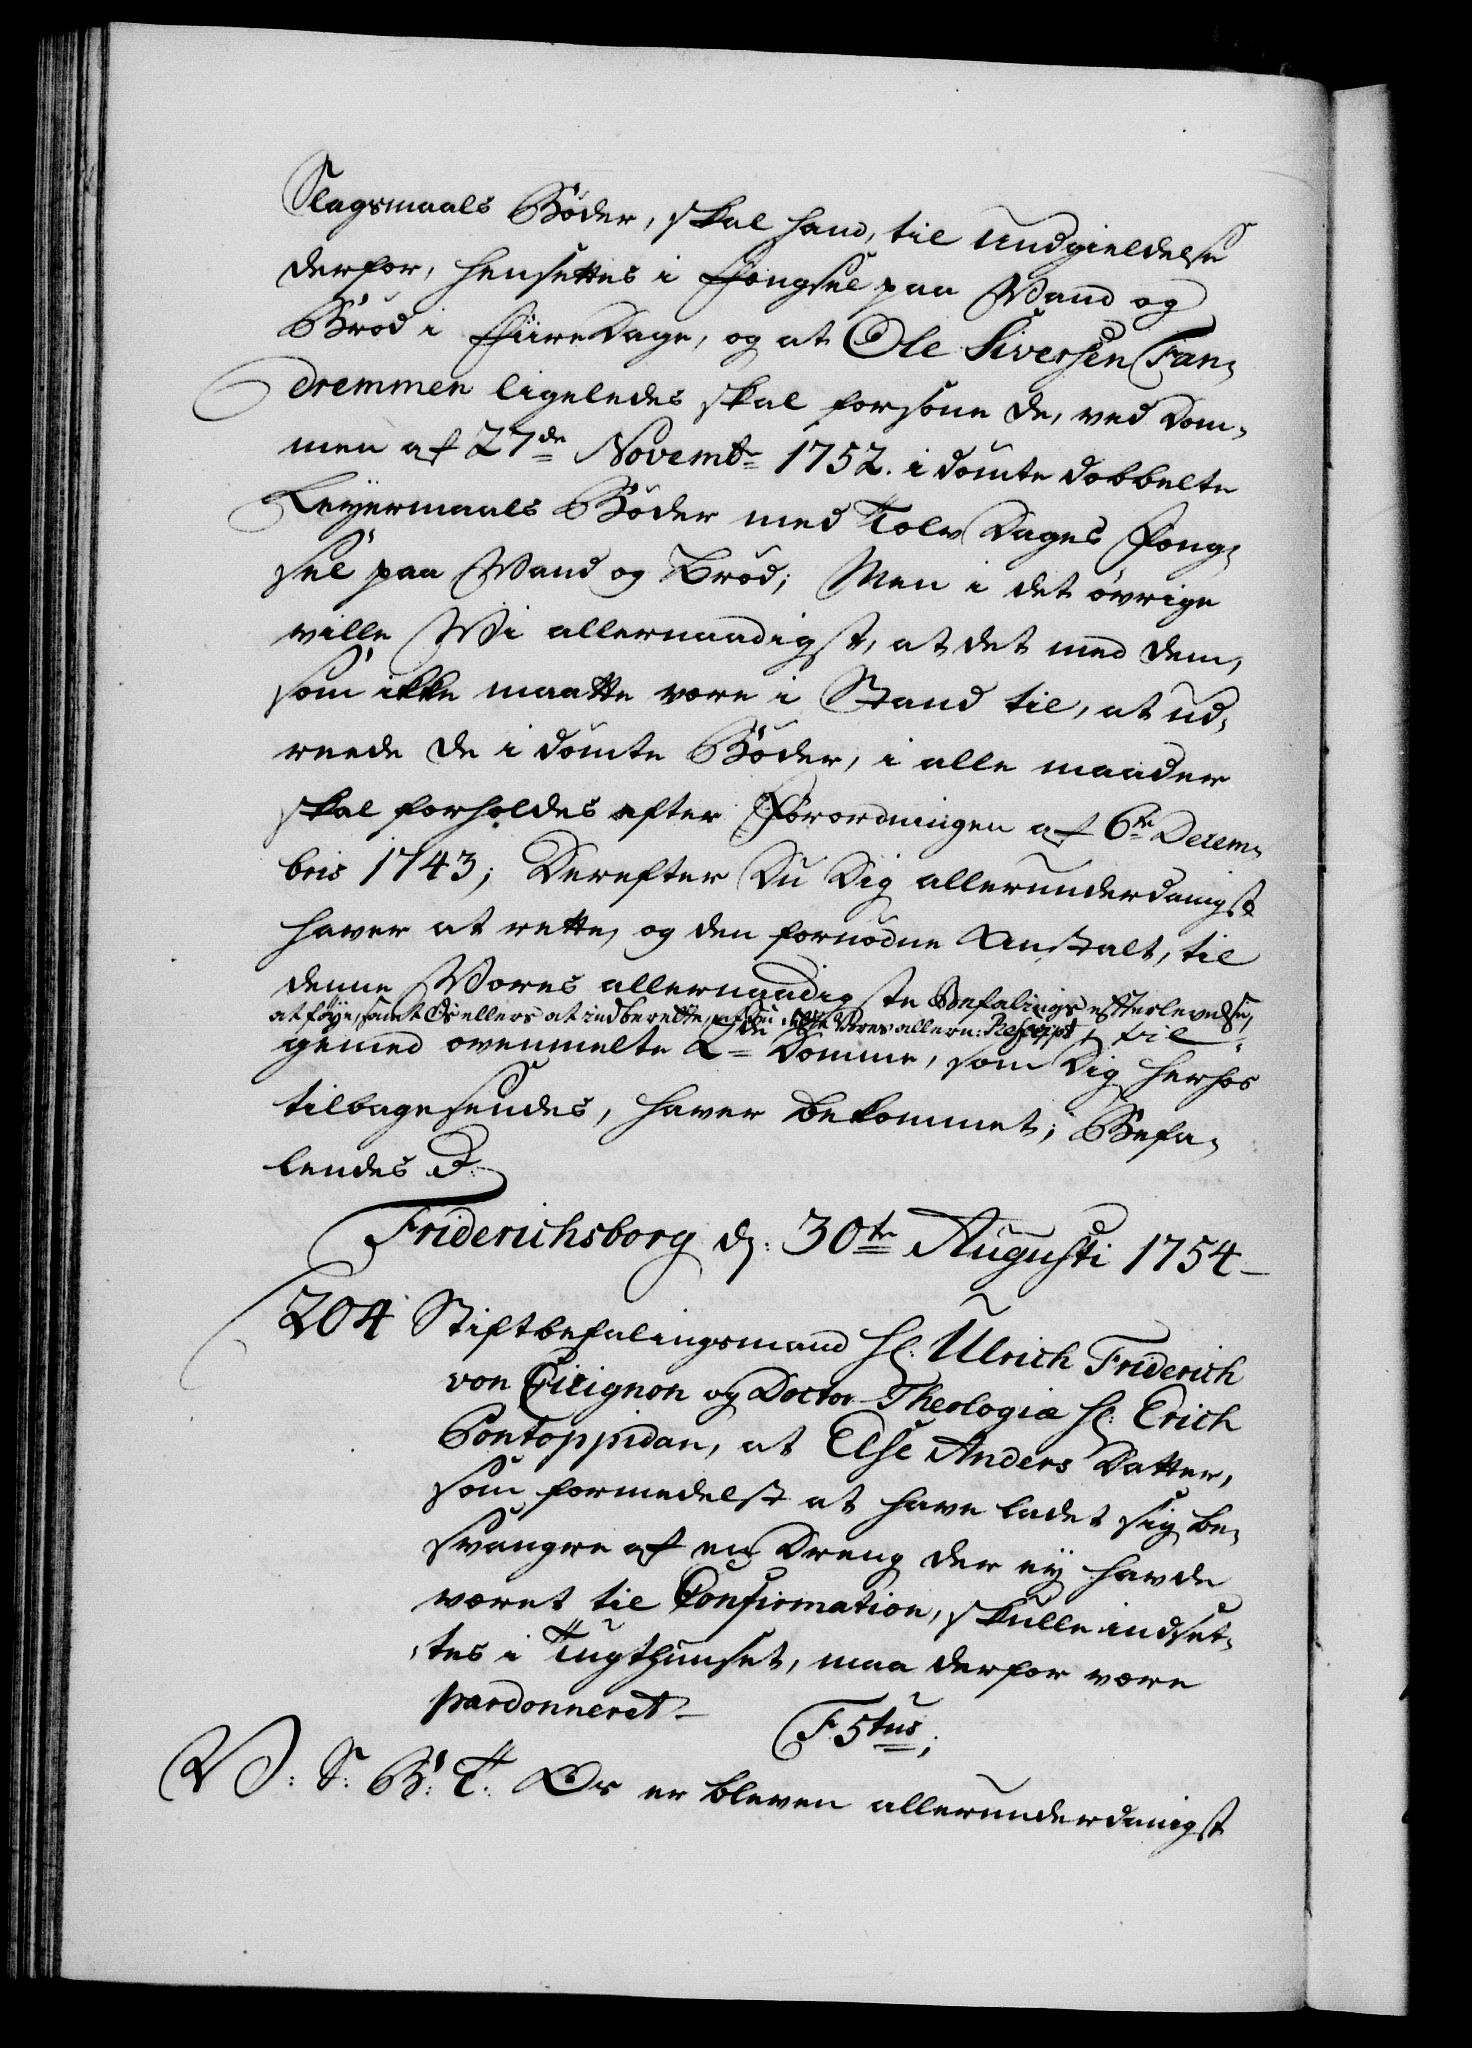 Slagsmaals Bøder, skal hand, til Undgieldelse
derfor, hensettes i Fængsel paa Vand og
Brød i Fiire Dage, og at Ole Siversen Fan-
dremmen ligeledes skal forsone de, ved Dom-
men af 27de Novembr 1752. i dømte dobbelte
Leyermaals Bøder med Tolv Dages Fæng-
sel paa Vand og Brød; Men i det øvrige
ville Wi allernaadigst, at det med dem,
som ikke maatte være i Stand til, at ud-
reede de i dømte Bøder, i alle maader
skal forholdes efter Forordningen af 6te Decem-
bris 1743; Derefter Du Dig allerunderdanigst
haver at rette, og den fornødne Anstalt, til
denne Vores allernaadigste Befalings efterlevelse,
at føye, samt Os ellers at indberette, at Du dette Vores allern: Rescript, til-
gemed ovenmelte 2de Domme, som Dig herhos
tilbagesendes, haver bekommet; Befa-
lendes D:
Friderichsborg d: 30te Augusti 1754
204 Stiftbefalingsmand Hr: Ulrich Friderich
von Cicignon og Doctor Theologiæ Hr: Erich
Pontoppidan, at Else Anders Datter,
som formedelst at have ladet sig be-
svangre af en Dreng der ey havde
været til Confirmation, skulle indset-
tes i Tugthuuset, maa derfor være
pardonneret
F 5tus;
V: S: B: T: Os er bleven allerunderdanigst